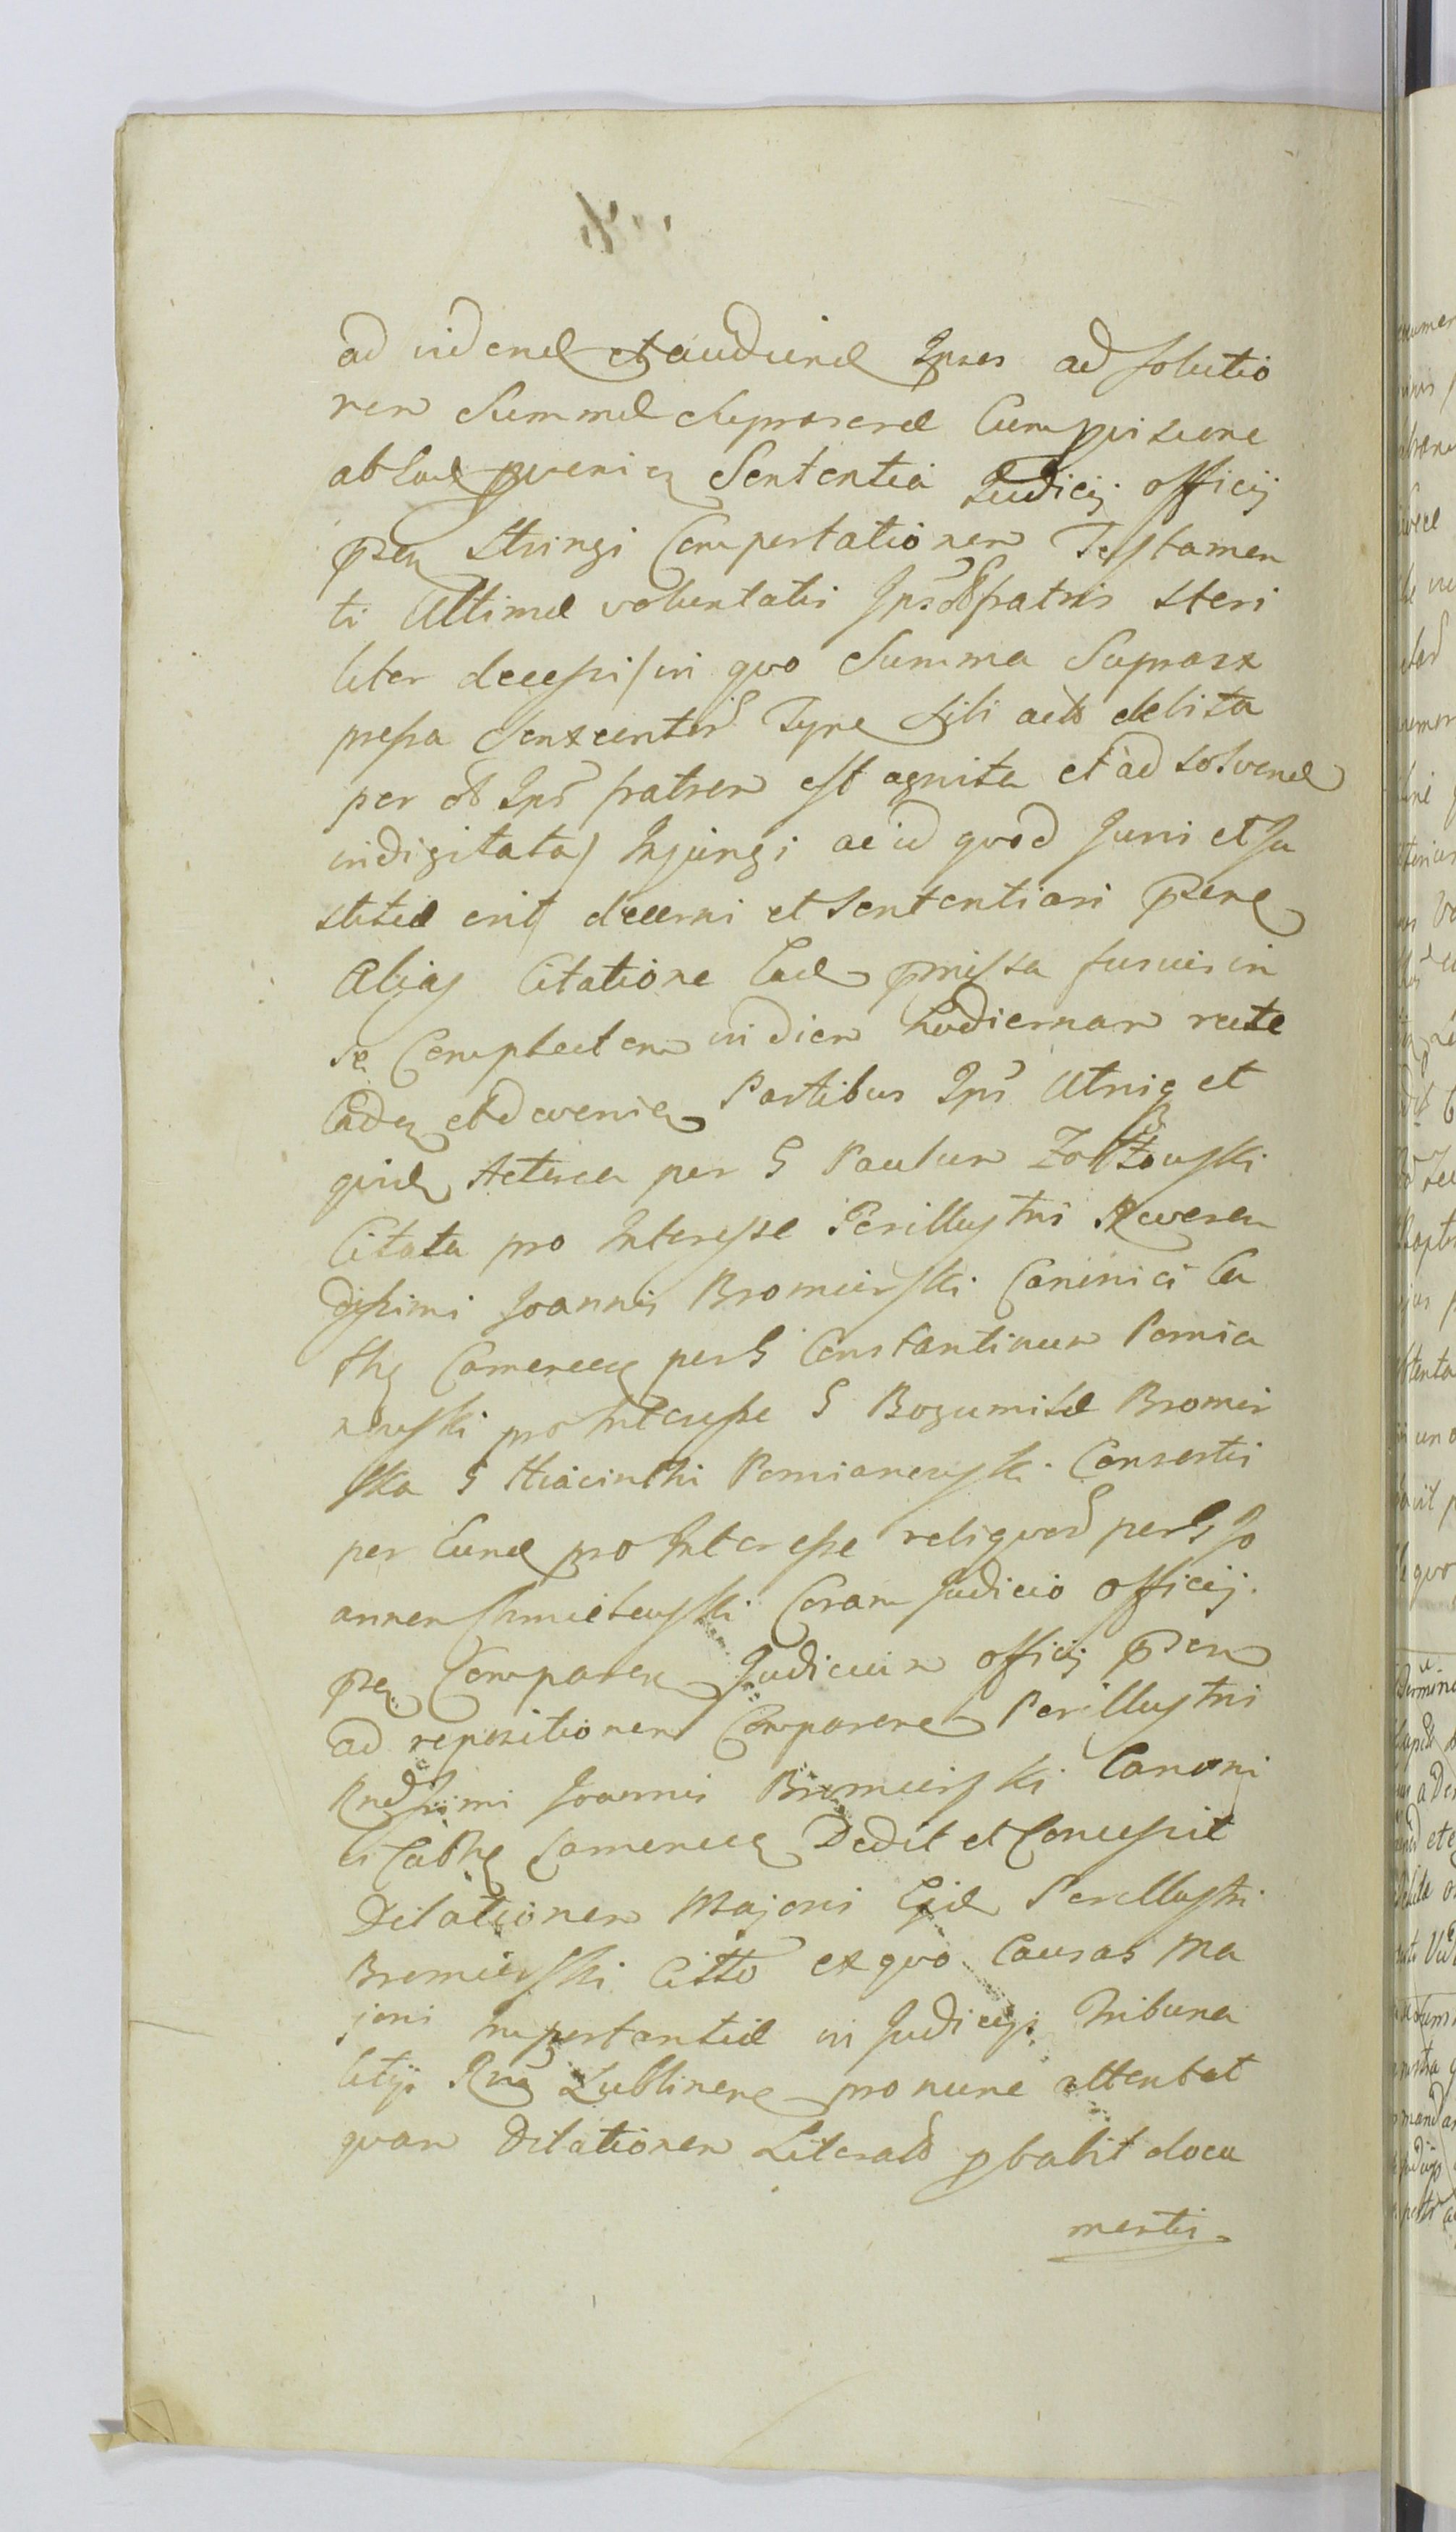 ad vidend et audiend Ipsos ad solutio
nem Summæ supraserend Cum provisione
ab Ead provenien Sententia Judicij officij
psen Stringi Comportationem Testamen
ti Ultimæ voluntatis Ipsor fratris steri
liter decessi /in quo Summa Supraex
pressa Sexcentor Tynf sibi acto debita
per ol Ips fratrem est agnita et ad solvend
indigitata/ Injungi ac id quod Juri et Ju
stitiæ erit decerni et Sententiari psene
Aliaq Citatione Ead pmissa fusius in
se Complecten in diem hodiernam recte
Caden et devenien Partibus Ips Utrisq et
quid Actorea per G Paulum Zołtowski
Citata pro Interesse Perillustris Reveren
dissimi Joannis Bromirski Canonici Ca
thę Camenecen per G Constantinum Pomia
nowski pro Interesse G Bogumilæ Bromir
ska G Hiacinthi Pomianowski Consortis
per Eund pro Interesse reliquor per G Jo
annem Chmielewski Coram Judicio officij
psen Comparen Judicium officij psen
ad repositionem Comparene Perillustris
Rndssimi Joannis Bromirski Canoni
ci Cathę Camenecen Dedit et Concessit
Dilationem Majoris Ejd Perillustri
Bromirski Citto ex quo Causas Ma
joris Importantiæ in Judicijs Tribuna
litijs Rni Lublinen pro nunc attentat
quam Dilationem Literato pbabit docu
mentis.